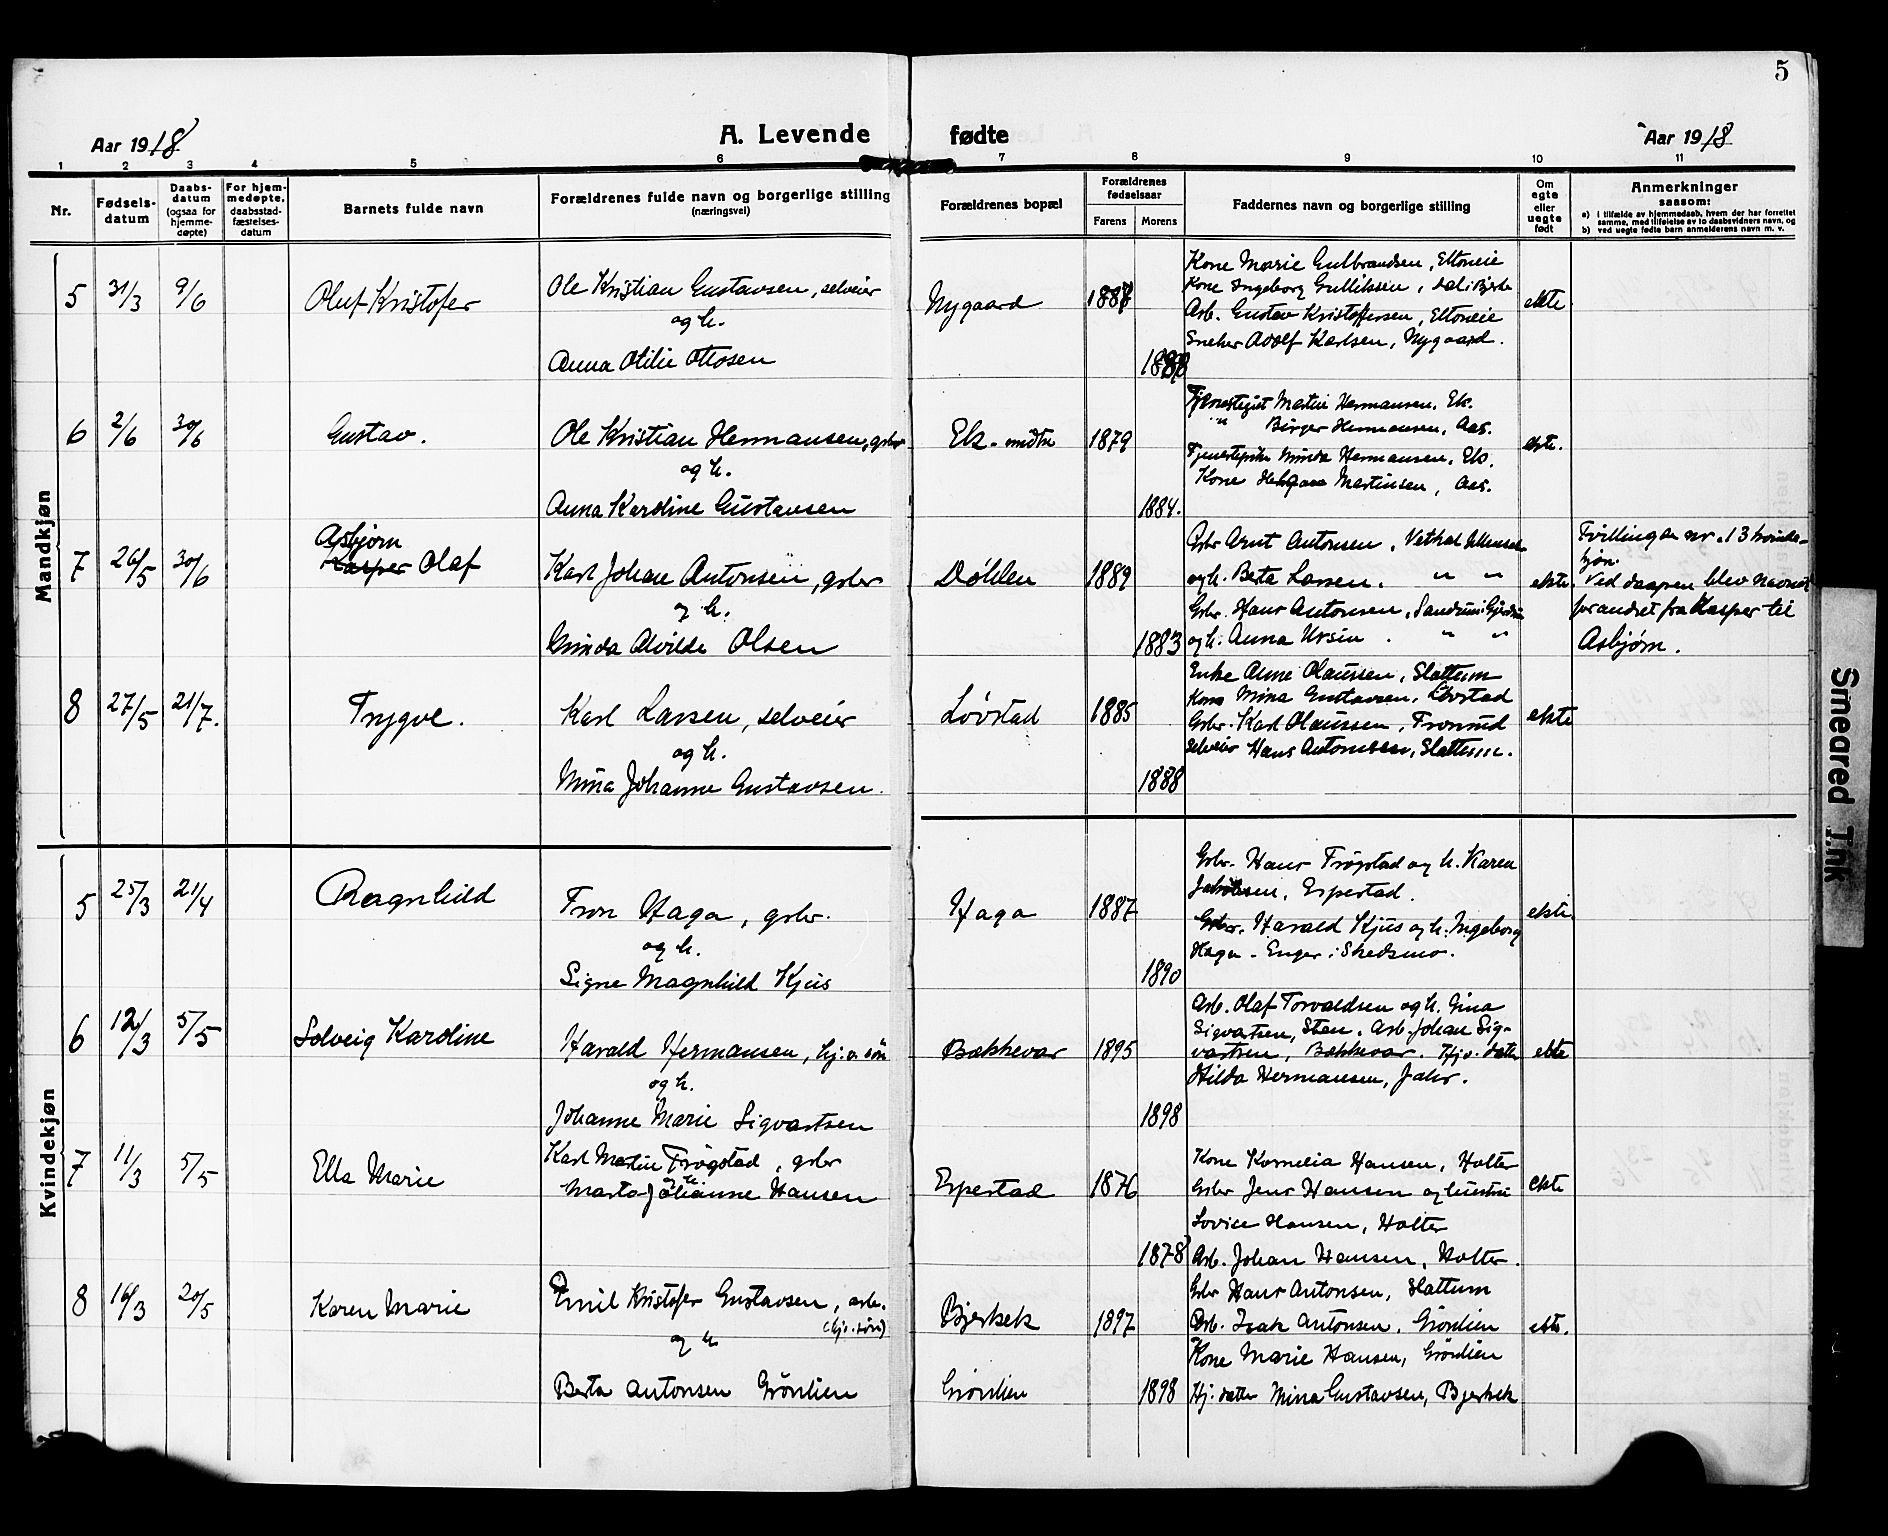 5
Aar 1918
A. Levende fødte
Aar 1918
1 2 3 4 5 6 7 8 9 10 11
Nr.
Fødsels-
datum
Daabs-
datum
(ogsaa for
hjemme-
døpte)
For hjem-
medøpte,
daabsstad-
fæstelses-
datum
Barnets fulde navn
Forældrenes fulde navn og borgerlige stilling
(næringsvei)
Forældrenes bopæl
Forældrenes
fødselsaar
Farens Morens
Faddernes navn og borgerlige stilling
Om
egte
eller
uegte
født
Anmerkninger
saasom:
a) i tilfælde av hjemmedaab, hvem der har forrettet
samme, med tilføielse av to daabsvidners navn, og
b) ved uegte fødte barn anmelderens navn m. v.
Mandkjøn
5 31/3 9/6 Oluf Kristofer
Ole Kristian Gustavsen, selveier
og h.
Anna Otilie Ottosen
Nygaard
Kone Marie Gulbrandsen, Eltoneie
Kone Ingeborg Gulliksen, Dal i Bjerke
Arb. Gustav Kristoffersen, Eltoneie
Sneker Adolf Karlsen, Nygaard.
ekte
6 2/6 30/6 Gustav.
Ole Kristian Hermansen, grbr
og h.
Anna Karoline Gustavsen
Ek - midtre 1879
1884.
Martin Hermansen, Ek.
" Birger Hermansen, Aas.
Tjenestepike Minda Hermansen, Ek.
Kone Martinsen, Aas.
ekte.
7 26/5 30/6
Asbjørn
Kasper Olaf
Karl Johan Antonsen, grbr
og h.
Gunda Alvilde Olsen
Døhlen 1889
1883
Grbr Arnt Antonsen,
og h. Berta Larsen. " "
Grbr. Hans Antonsen,
og h. Anna Ursin. " "
ekte.
Tvilling av nr. 13 kvinde-
kjøn.
Ved daapen blev navnet
forandret fra Kasper til
Asbjørn.
8 27/5 21/7. Trygve.
Karl Larsen, selveier
og h.
Mina Johanne Gustavsen.
Løvstad 1885
1888
Enke Anne Olaussen, Slattum
Kone Mina Gustavsen, Løvstad
Grbr. Karl Olaussen, Tronrud
Selveier Hans Antonsen, Slattum.
ekte
Kvindekjøn
5 25/3 21/4 Ragnhild
Tron Haga, grbr.
og h.
Signe Magnhild Kjus
Haga 1887
1890
Grbr. Hans Trøgstad og h. Karen
Jakobsen, Erpestad.
Grbr. Harald Kjus og h. Ingeborg
Haga - Enger i Skedsmo.
ekte.
6 12/3 5/5 Solveig Karoline
Harald Hermansen, hj.v. søn
og h.
Johanne Marie Sigvartsen
Bakkevar 1895
1898
Arb. Olaf Torvaldsen og h. Gina
Sigvartsen, Sten. Arb. Johan Sig-
vartsen, Bakkevar. Hjv. datter
Hilda Hermansen, Jahr.
ekte
7 11/3 5/5 Ella Marie
Karl Martin Trøgstad, grbr
og h.
Marta Johanne Hansen
Erpestad 1876
1878
Kone Kornelia Hansen, Holter
Grbr Jens Hansen og hustru
Lovise Hansen, Holter
Arb. Johan Hansen, Holter.
ekte
8 16/3 20/5 Karen Marie
Emil Kristofer Gustavsen, arb.
(hjv. søn)
og h
Berta Antonsen Grønlien
Bjerkek 1897
Grønlien 1898
Grbr Hans Antonsen, Slattum
Arb. Isak Antonsen, Grønlien
Kone Marie Hansen, Grønlien
Hj. datter Mina Gustavsen, Bjerkek
ekte.
Smeared Ink